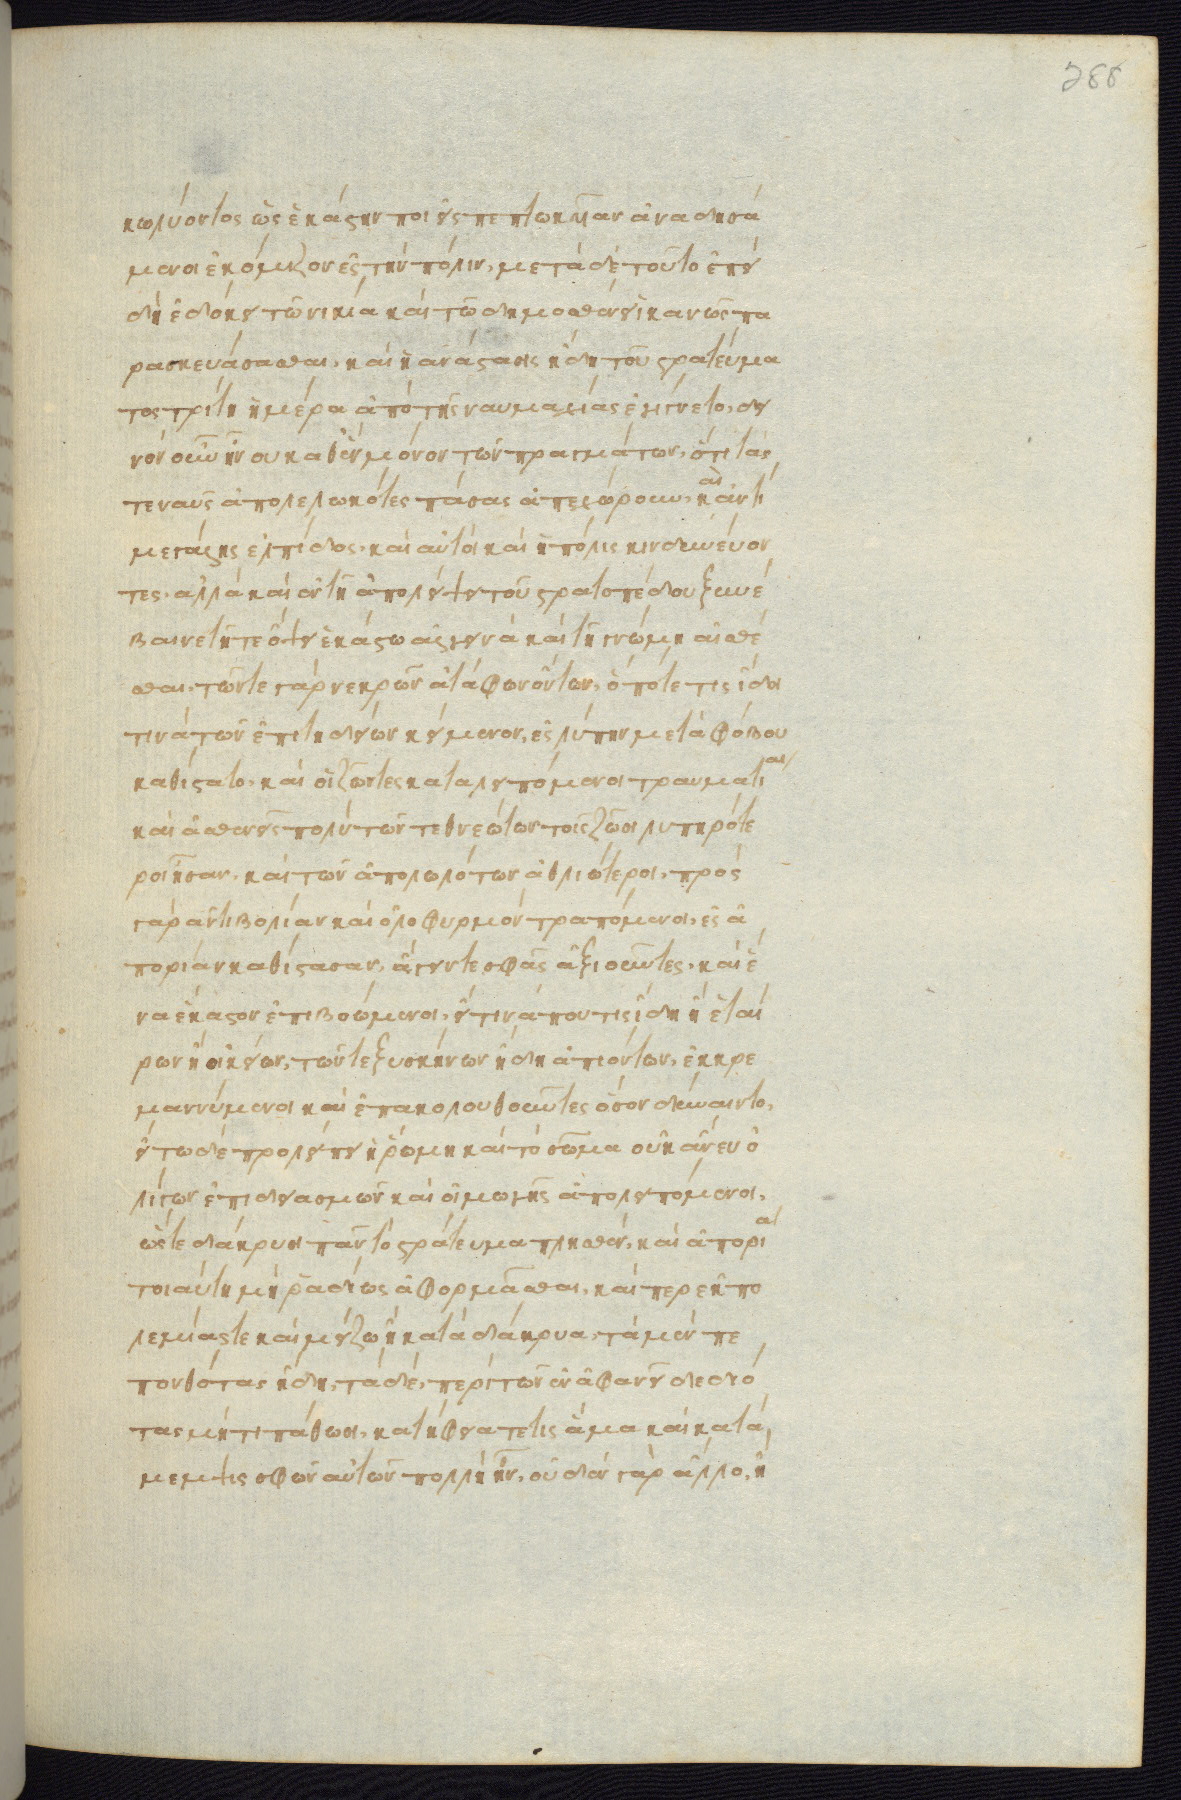 288
κωλύοντος ὡς ἑκάστην ποι ἐκπεπτωκυῖαν ἀναδησά
μενοι ἐκόμιζον ἐς τὴν πόλιν. μετὰ δὲ τοῦτο ἐπει
δὴ ἐδόκει τῶ νικία καὶ τῶ δημοσθένει ἱκανῶς πα
ρασκευάσασθαι, καὶ ἡ ἀνάστασις ἤδη τοῦ στρατεύμα
τος τρίτη ἡμέρα ἀπὸ τῆς ναυμαχίας ἐγίγνετο. δει
νὸν οὖν ἦν οὐ καθ' ἓν μόνον τῶν πραγμάτων, ὅτι τάς
τε ναῦς ἀπολελωκότες πάσας ἀπεχώρουν, καὶ ἀντὶ
μεγάλης ἐλπίδος, καὶ αὐτοὶ καὶ ἡ πόλις κινδυνεύον
τες. ἀλλὰ καὶ ἐν τῆ ἀπολείψει τοῦ στρατοπέδου ξυνέ
βαινε τῆ τε ὄψει ἑκάστω ἀλγεινὰ καὶ τῆ γνώμη αἰσθέ
σθαι. τῶν τε γὰρ νεκρῶν ἀτάφων ὄντων, ὁπότε τις ἴδοι
τινὰ τῶν ἐπιτηδείων κείμενον, ἐς λύπην μετὰ φόβου
καθίστατο. καὶ οἱ ζῶντες καταλειπόμενοι τραυματίαι
καὶ ἀσθενεῖς πολὺ τῶν τεθνεώτων τοῖς ζῶσι λυπηρότε
ροι ἦσαν, καὶ τῶν ἀπολωλότων ἀθλιώτεροι. πρὸς
γὰρ ἀντιβολίαν καὶ ὀλοφυρμὸν τραπόμενοι, ἐς ἀ
πορίαν καθίστασαν, ἄγειν τε σφᾶς ἀξιοῦντες, καὶ ἕ
να ἕκαστον ἐπιβοώμενοι, εἴ τινά που τις ἴδη ἢ ἑταί
ρων ἢ οἰκείων, τῶν τε ξυσκήνων ἤδη ἀπιόντων, ἐκκρε
μαννύμενοι καὶ ἐπακολουθοῦντες ὅσον δύναιντο.
εἴ τω δὲ προλείπει ἡ ῥώμη καὶ τὸ σῶμα οὐκ ἄνευ ὀ
λίγων ἐπιθειασμῶν καὶ οἰμωγῆς ἀπολειπόμενοι.
ὥστε δάκρυσι πᾶν τὸ στράτευμα πλησθὲν, καὶ ἀπορία
τοιαύτη μὴ ῥαδίως ἀφορμᾶσθαι, καίπερ ἐκ πο
λεμίας τε καὶ μείζω ἢ κατὰ δάκρυα, τὰ μὲν πε
πονθότας ἤδη, τὰ δὲ, περὶ τῶν ἐν ἀφανεῖ δεδιό
τας μή τι πάθωσι. κατήφειά τέ τις ἅμα καὶ κατά
μεμψις σφῶν αὐτῶν πολλὴ ἦν. οὐδὲν γὰρ ἄλλο, ἢ